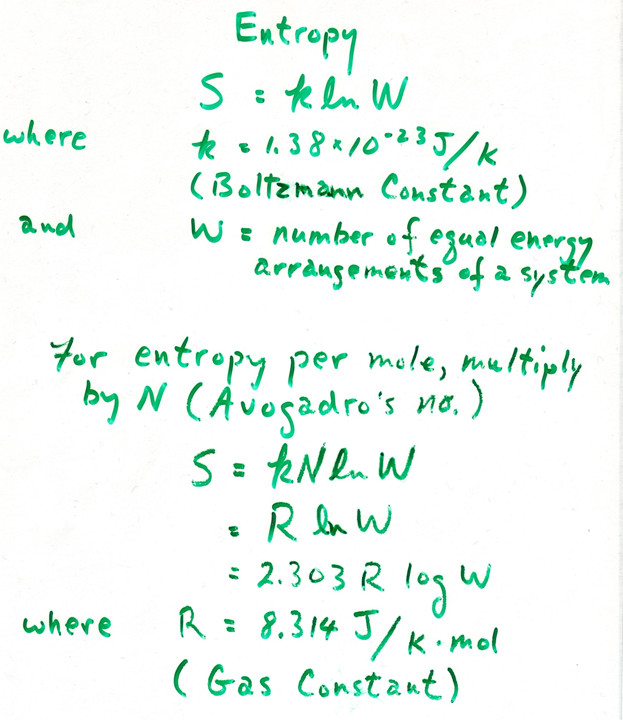 Entropy
S = k ln W
where k = 1.38 × 10⁻²³ J/K
(Boltzmann Constant)
and W = number of equal energy
arrangements of a system
For entropy per mole, multiply
by N (Avogadro's no.)
S = kN ln W
= R ln W
= 2.303 R log W
where R = 8.314 J/K·mol
(Gas Constant)